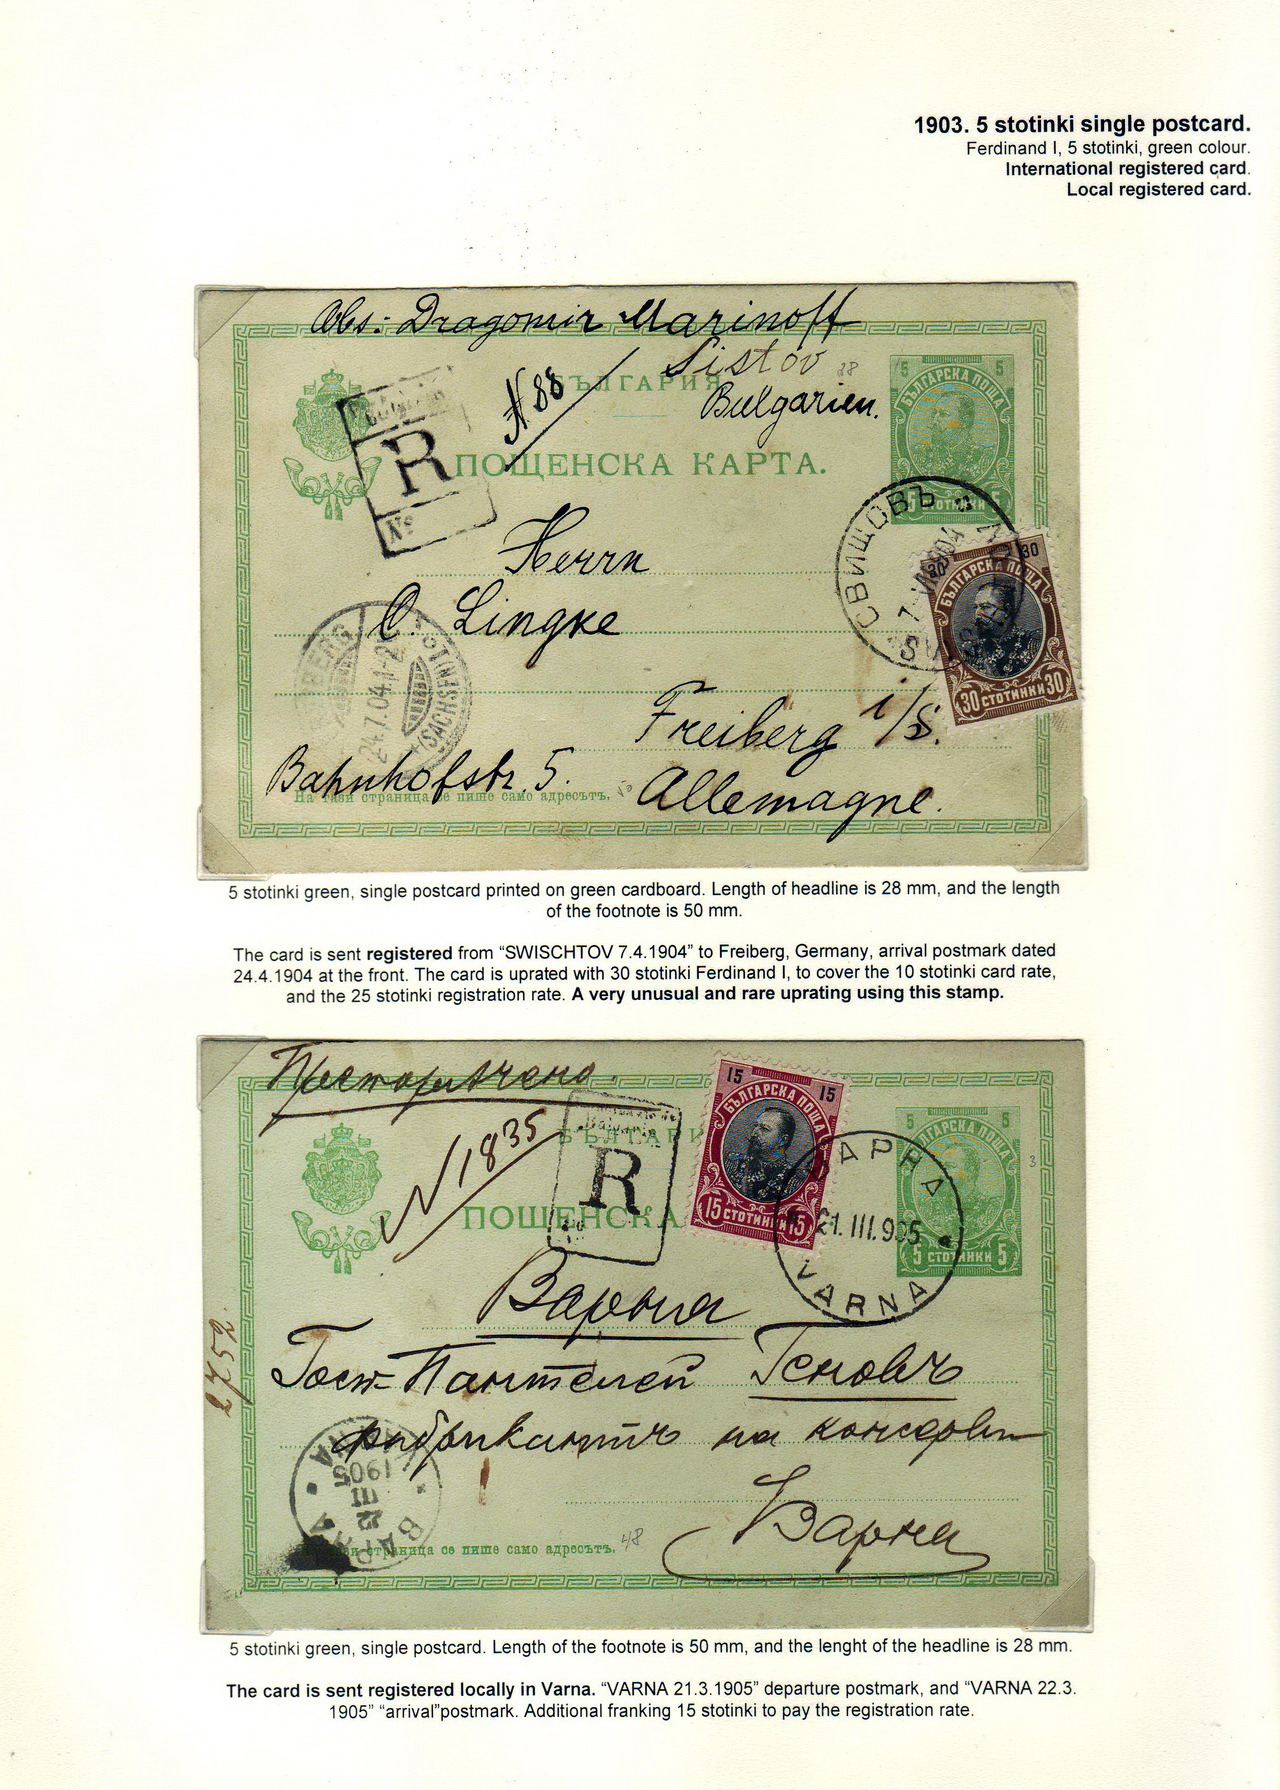 1903. 5 stotinki single postcard.
Ferdinand I, 5 stotinki, green colour.
International registered card.
Local registered card.
Abs: Dragomir Marinoff
Sistov
Bulgarien.
N 88
БЪЛГАРИЯ
ПОЩЕНСКА КАРТА.
R
No
5 5
БЪЛГАРСКА ПОЩА
5 СТОТИНКИ 5
СВИЩОВЪ
30 30
БЪЛГАРСКА ПОЩА
30 СТОТИНКИ 30
Herrn
C. Lingke
BERG
24.7.04.1-2
(SACHSEN)
Freiberg i/S.
Bahnhofstr. 5.
Allemagne.
На тази страница се пише само адресътъ.
5 stotinki green, single postcard printed on green cardboard. Length of headline is 28 mm, and the length
of the footnote is 50 mm.
The card is sent registered from “SWISCHTOV 7.4.1904” to Freiberg, Germany, arrival postmark dated
24.4.1904 at the front. The card is uprated with 30 stotinki Ferdinand I, to cover the 10 stotinki card rate,
and the 25 stotinki registration rate. A very unusual and rare uprating using this stamp.
Препоръчено.
N 1835
БЪЛГАРИ
ПОЩЕНСКА
R
15 15
БЪЛГАРСКА ПОЩА
15 СТОТИНКИ 15
5 5
БЪЛГАРСКА ПОЩА
5 СТОТИНКИ 5
ВАРНА
21.III.905
VARNA
2752.
Варна
Госп. Пантелей Геновъ
фабрикантъ на консерви
Варна
ВАРНА
22 III 1905
страница се пише само адресътъ.
48
5 stotinki green, single postcard. Length of the footnote is 50 mm, and the lenght of the headline is 28 mm.
The card is sent registered locally in Varna. “VARNA 21.3.1905” departure postmark, and “VARNA 22.3.
1905” “arrival”postmark. Additional franking 15 stotinki to pay the registration rate.